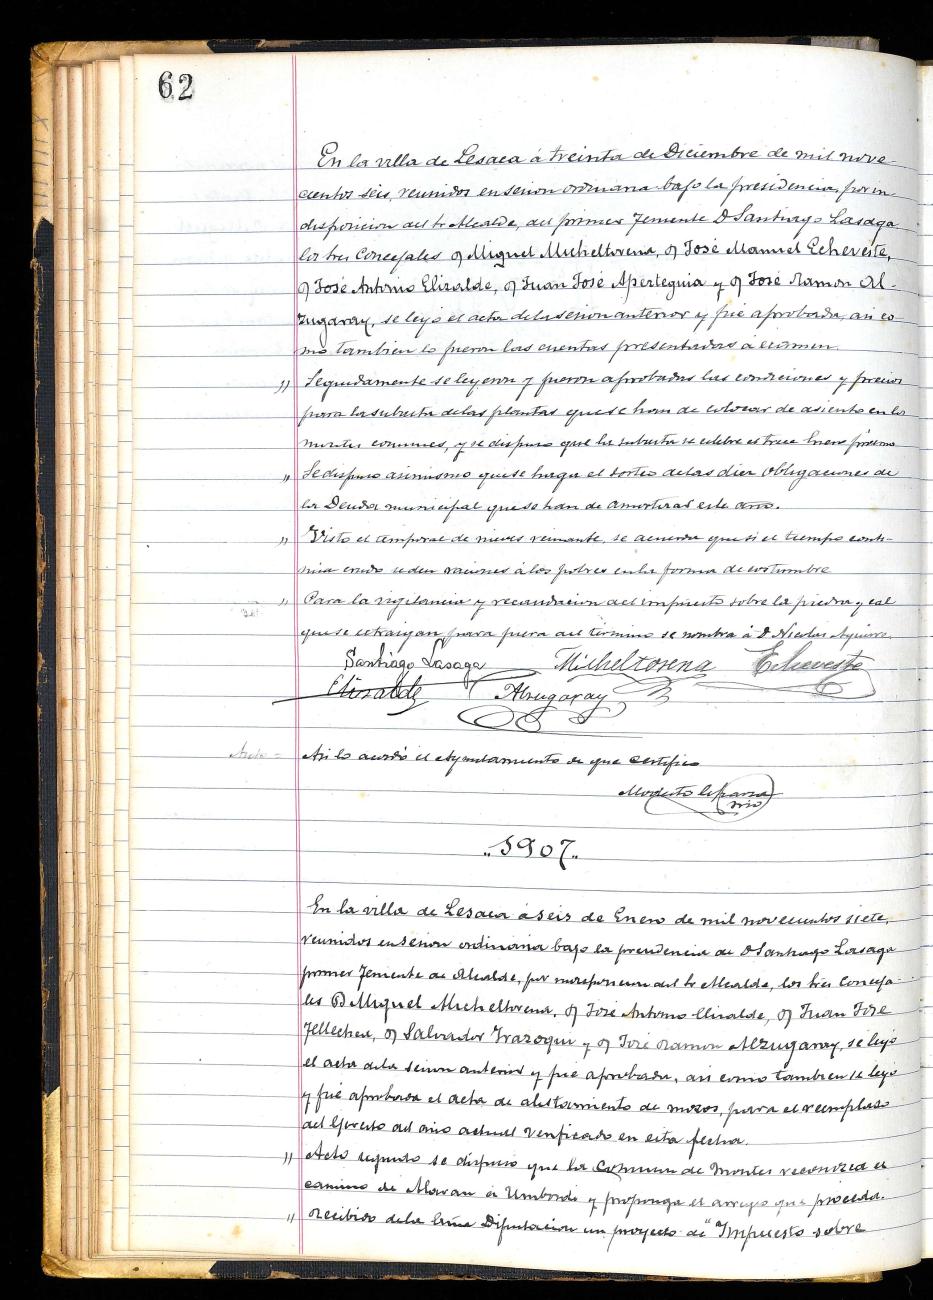 62
En la villa de Lesaca á treinta de Diciembre de mil nove-
cientos seis, reunidos en sesion ordinaria bajo la presidencia, por in-
disposicion del Sr Alcalde, del primer Teniente D Santiago Lasaga
los tres Concejales D Miguel Micheltorena, D José Manuel Echeveste,
D José Antonio Elizalde, D Juan José Aperteguia y D José Ramon Al-
zugaray, se leyó el acta de la sesion anterior y fué aprobada, asi co-
mo tambien lo fueron las cuentas presentadas á examen.
" Seguidamente se leyeron y fueron aprobadas las condiciones y precios
para la subasta de las plantas que se han de colocar de asiento en los
montes comunes, y se dispuso que la subasta se celebre el trece Enero próximo
" Se dispuso asimismo que se haga el sorteo de las diez Obligaciones de
la Deuda municipal que se han de amortizar este año.
" Visto el temporal de nieves reinante, se acuerda que si el tiempo conti-
núa crudo se den raciones á los pobres en la forma de costumbre
" Para la vigilancia y recaudacion del impuesto sobre la piedra y cal
que se extraigan para fuera del término se nombra á D Nicolas Aguirre.
Santiago Lasaga Micheltorena Echeveste
Elizalde Alzugaray
Asi lo acordó el Ayuntamiento de que certifico
Modesto Esparza
srio
"1907"
En la villa de Lesaca á seis de Enero de mil novecientos siete,
reunidos en sesion ordinaria bajo la presidencia de D Santiago Lasaga
primer Teniente de Alcalde, por indisposicion del Sr Alcalde, los tres Conceja-
les D Miguel Micheltorena, D José Antonio Elizalde, D Juan José
Tellechea, D Salvador Irazoqui y D José Ramon Alzugaray, se leyó
el acta de la sesion anterior y fué aprobada, asi como tambien se leyó
y fué aprobada el acta de alistamiento de mozos, para el reemplazo
del Ejército del año actual verificado en esta fecha.
" Acto seguido se dispuso que la Comision de Montes reconozca el
camino de á y proponga el arreglo que proceda.
" Recibido de la Excma Diputacion un proyecto de "Impuesto sobre